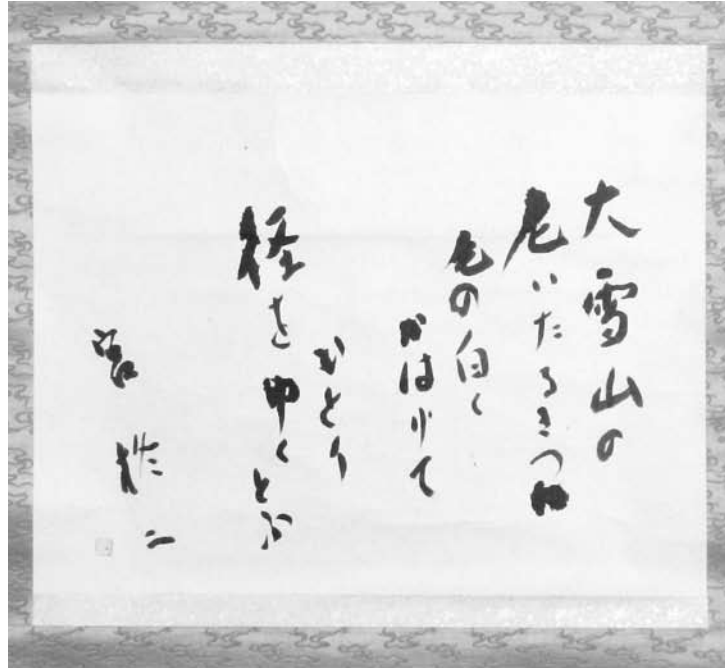 大雪山の
老いたるきつね
毛の白く
かはりて
ひとり
径をゆくとふ
宮柊二